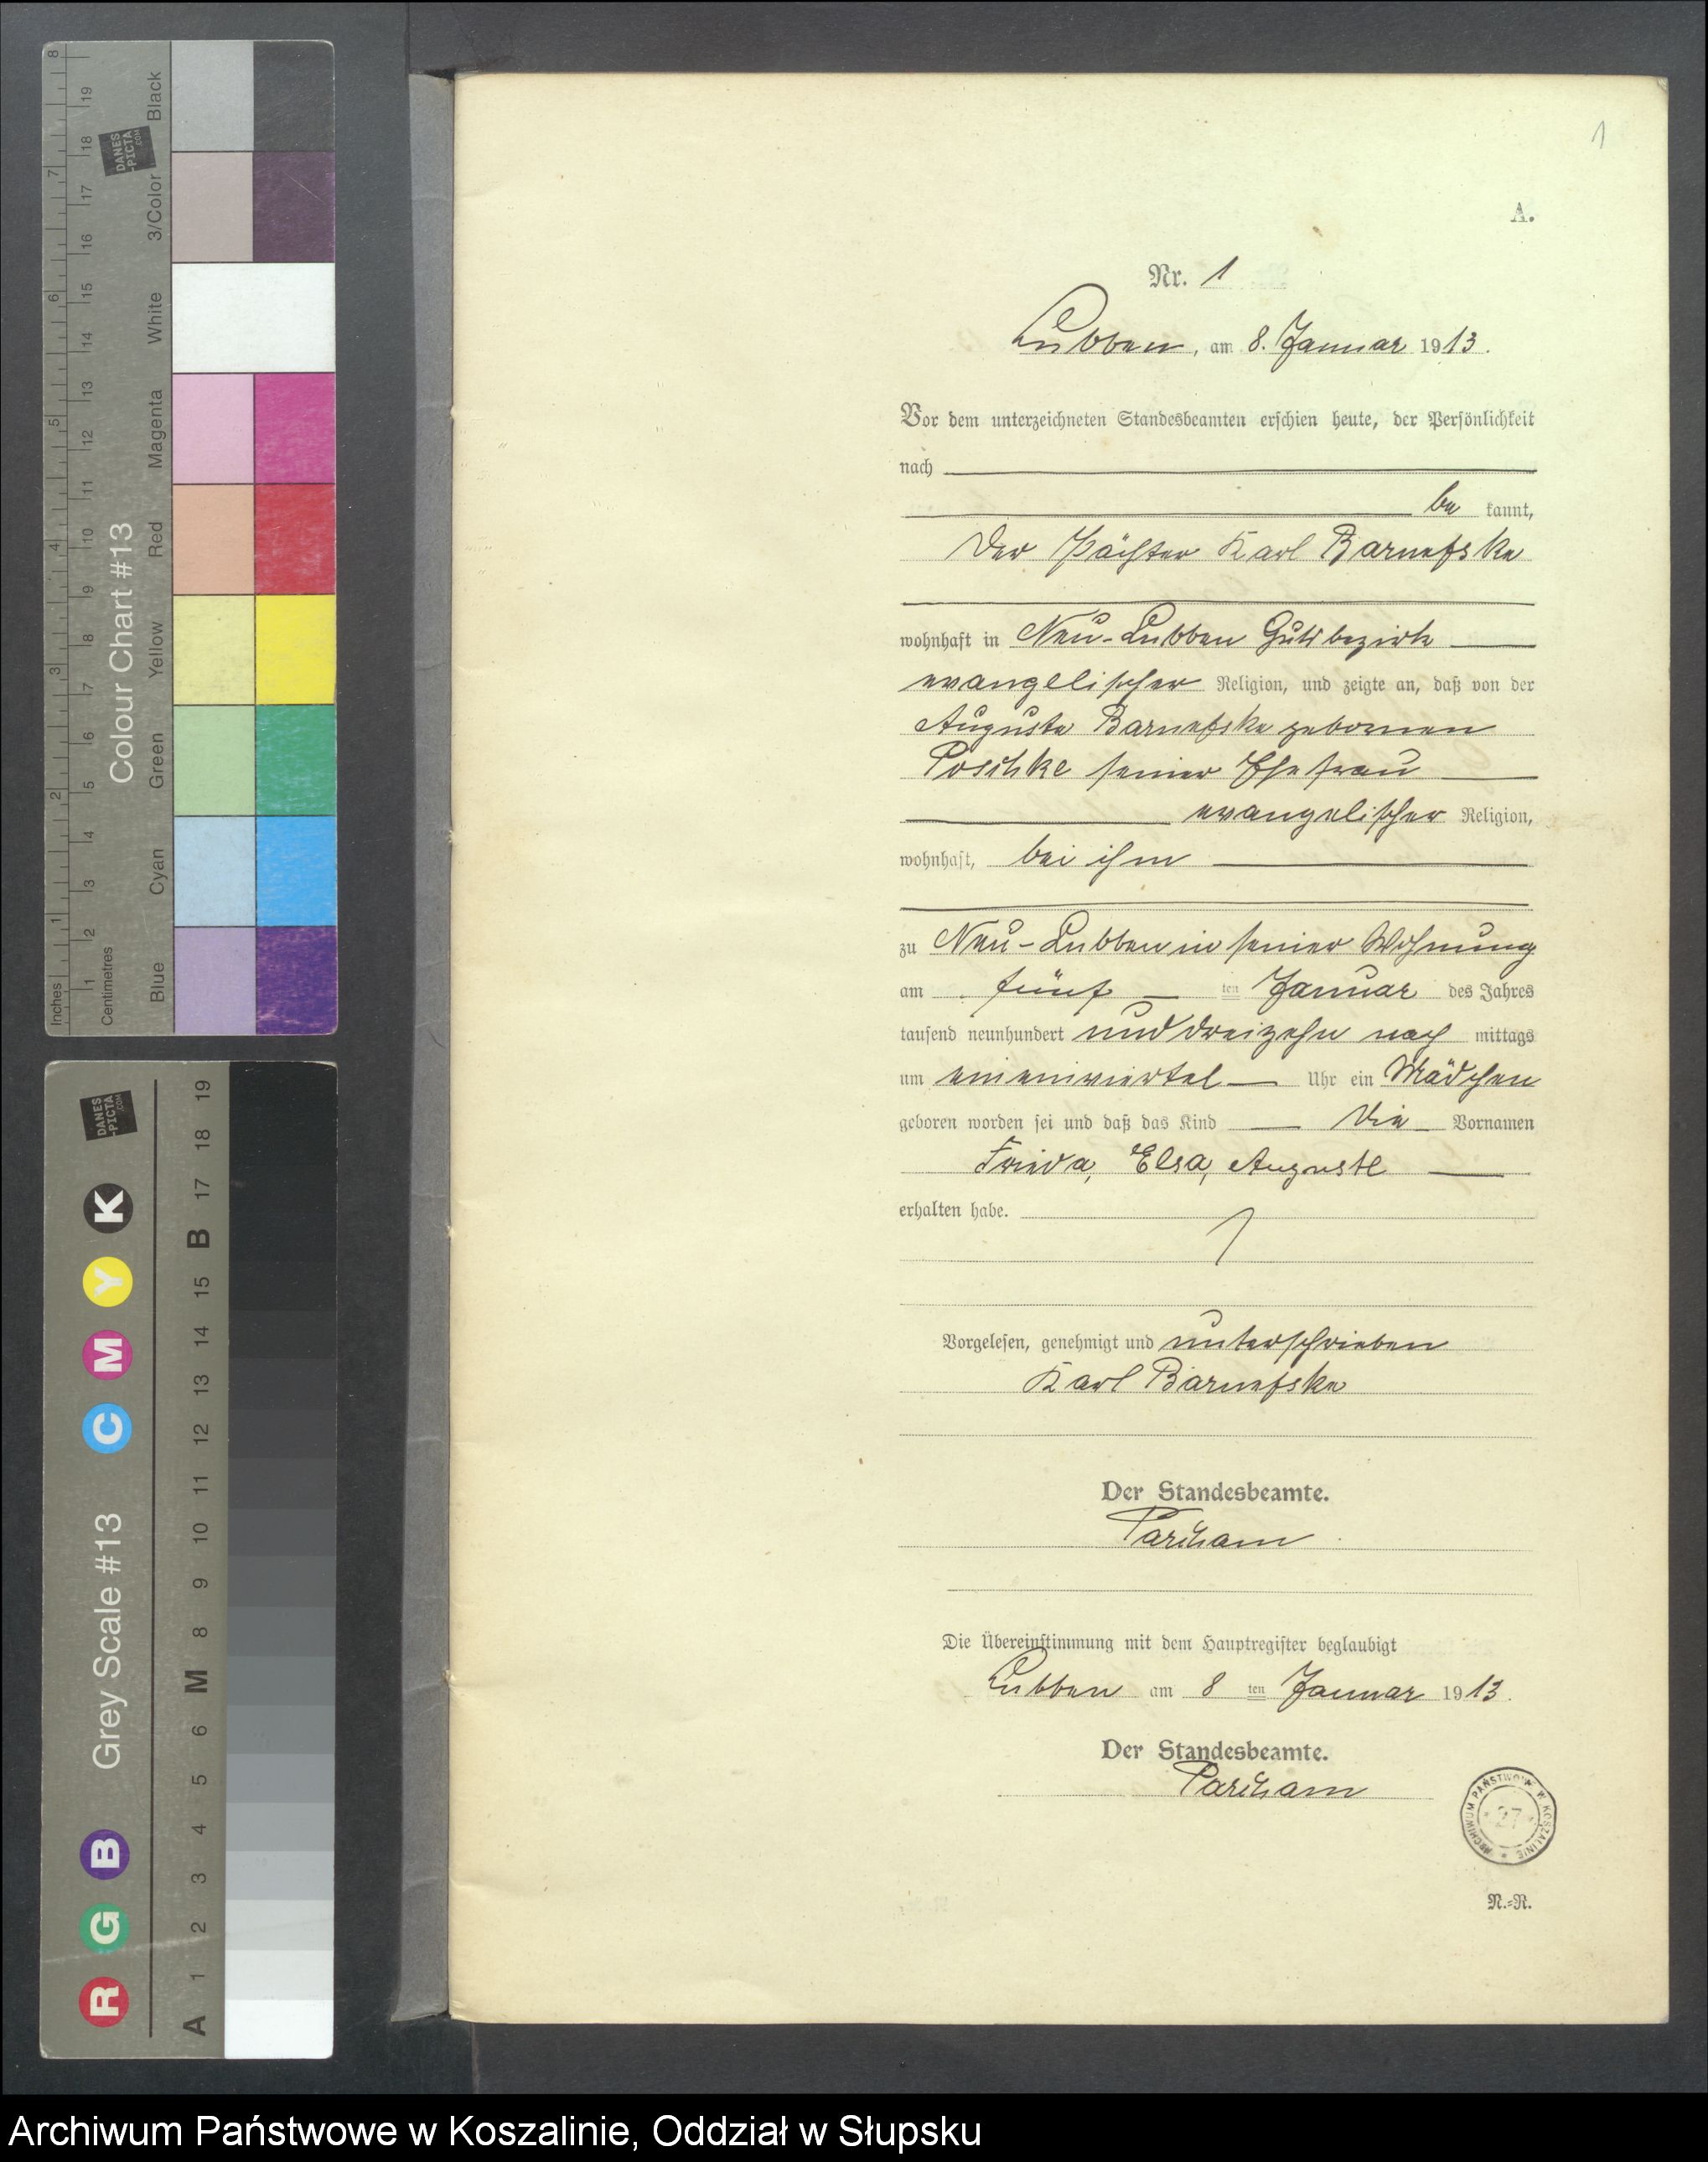 1
A.
Nr. 1
Lubben, am 8. Januar 1913.
Vor dem unterzeichneten Standesbeamten erschien heute, der Persönlichkeit
nach
be kannt,
der Pächter Karl Barnefske
wohnhaft in Neu-Lubben Gutsbezirk
evangelischer Religion, und zeigte an, daß von der
Auguste Barnefske geborenen
Poschke seiner Ehefrau
evangelischer Religion,
wohnhaft, bei ihm
zu Neu-Lubben in seiner Wohnung
am fünf ten Januar des Jahres
tausend neunhundert und dreizehn nach mittags
um ein einviertel Uhr ein Mädchen
geboren worden sei und daß das Kind die Vornamen
Frieda, Elsa, Auguste
erhalten habe.
Vorgelesen, genehmigt und unterschrieben
Karl Barnefske
Der Standesbeamte.
Die Übereinstimmung mit dem Hauptregister beglaubigt
Lubben am 8 ten Januar 1913.
Der Standesbeamte.
ARCHIWUM PAŃSTWOWE W KOSZALINIE
27
N.-R.
Inches 1 2 3 4 5 6 7 8
Centimetres 1 2 3 4 5 6 7 8 9 10 11 12 13 14 15 16 17 18 19
Colour Chart #13
Blue Cyan Green Yellow Red Magenta White 3/Color Black
DANES
-PICTA
.COM
Grey Scale #13
R G B C M Y K
A 1 2 3 4 5 6 M 8 9 10 11 12 13 14 15 B 17 18 19
DANES
-PICTA
.COM
Archiwum Państwowe w Koszalinie, Oddział w Słupsku